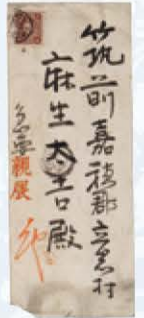 筑前嘉穂郡立岩村
麻生太吉殿
急要親展